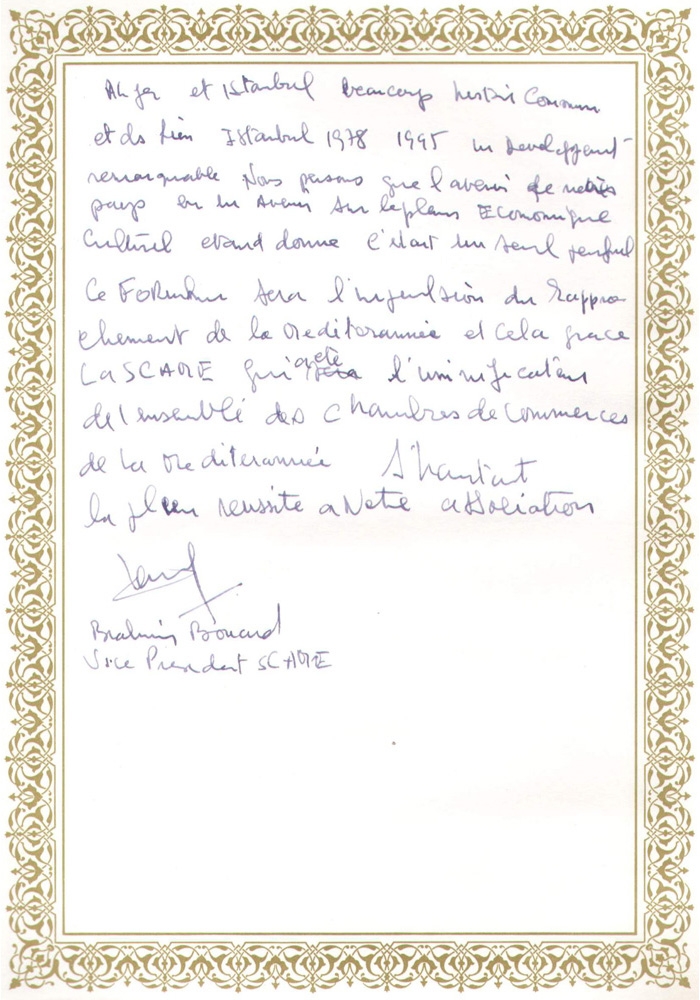 Alger et Istanbul beaucoup histoire Commun
et des lien Istanbul 1978 1995 un developpent
remarquable Nous pensons que l'avenir de
pays un avenir sur le plan Economique
Culturel etant donne c'etait un seul
Ce Forum sera l'impulsion du Rappro
chement de la mediterannée et cela grace
La SCAME qui a été l'uminification
de l'ensemble des Chambres de Commerces
de la mediterannée S'hautant
la plein reussite a Notre association
Brahim Bouard
Vice President SCAME